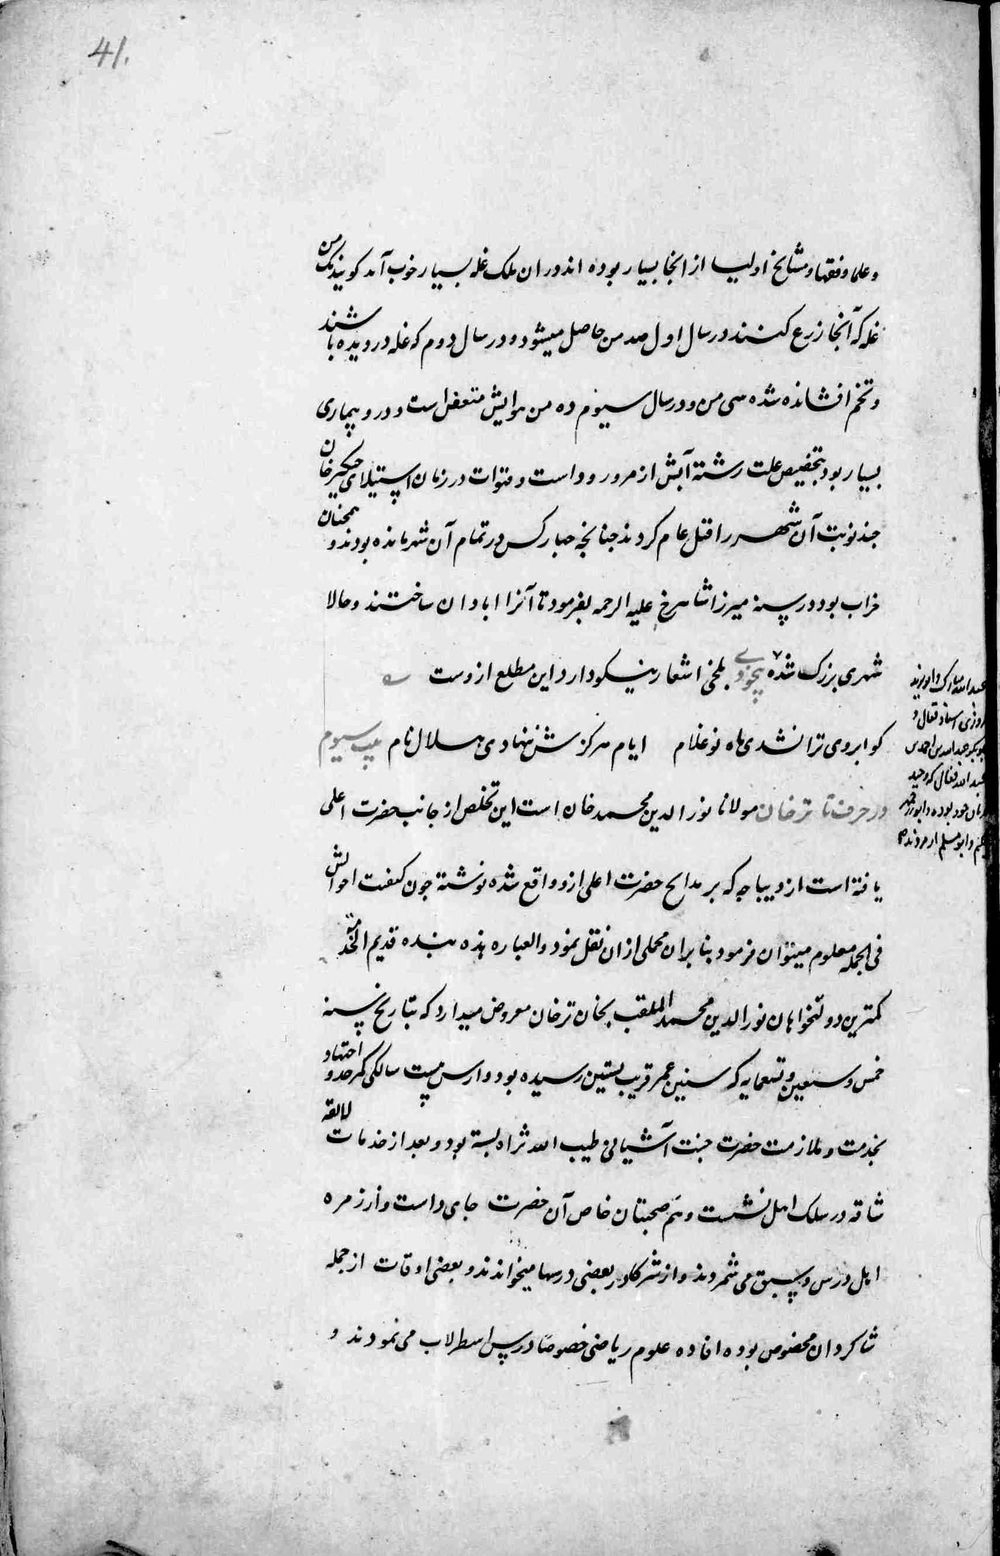 41.
و علما و فقها و مشایخ اولیا از انجا بسیار بوده اند و ران ملک غله بسیار خوب آمد کویند یک من
غله که آنجا زرع کنند در سال اول صد من حاصل میشود و در سال دوم که غله درویده باشند
و تخم افشانده شده سی من و در سال سیوم ده من هوایش متعفن است و درو بیماری
بسیار بود بتخصیص علت رشته آبش از مرو رود است و قنوات در زمان استیلای چنکیز خان
چند نوبت آن شهر را قتل عام کردند چنانچه چهار کس در تمام آن شهر مانده بودند و همچنان
خراب بود در سنه میرزا شاهرخ علیه الرحمه بفرمود تا آنرا ابادان ساختند و حالا
شهری بزرک شده بیخودی بلخی اشعار نیکو دارد این مطلع ازوست
کو ابروی ترا نشدی ماه نو غلام ایام مرکزش ننهادی هلال نام باب سیوم
در حرف تا ترخان مولانا نورالدین محمد خان است این تخلص از جانب حضرت اعلی
یافته است از دیباجه که بر مدایح حضرت اعلی ازو واقع شده نوشته چون کیفیت احوالش
فی الجمله معلوم میتوان فرمود بنابران محلی ازان نقل نمود و العباره هذه بنده قدیم الخدمه
کمترین دولتخواهان نورالدین محمد الملقب بخان ترخان معروض میدارد که بتاریخ سنه
خمس و سبعین و تسعمایه که سنین عمر قریب بستین رسیده بود و از سن بیست سالکی کمر جد و اجتهاد
بخدمت و ملازمت حضرت جنت آشیانی طیب الله ثراه بسته بود و بعد از خدمات لایقه
شاقه در سلک اهل نشست و هم صحبتان خاص آن حضرت جای داشت و از زمره
اهل درس و سبق می شمردند و از شرکا در بعضی درسها میخواندند و بعضی اوقات از جمله
شاکردان مخصوص بوده افاده علوم ریاضی خصوصا درس اسطرلاب می نمودند و
عبد الله مبارک
استاد قفال و
ابوبکر عبدالله بن احمد بن
عبد الله قفال که وحید
زمان خود بوده و ابوزرجمهر
حکیم و ابو مسلم از مروند